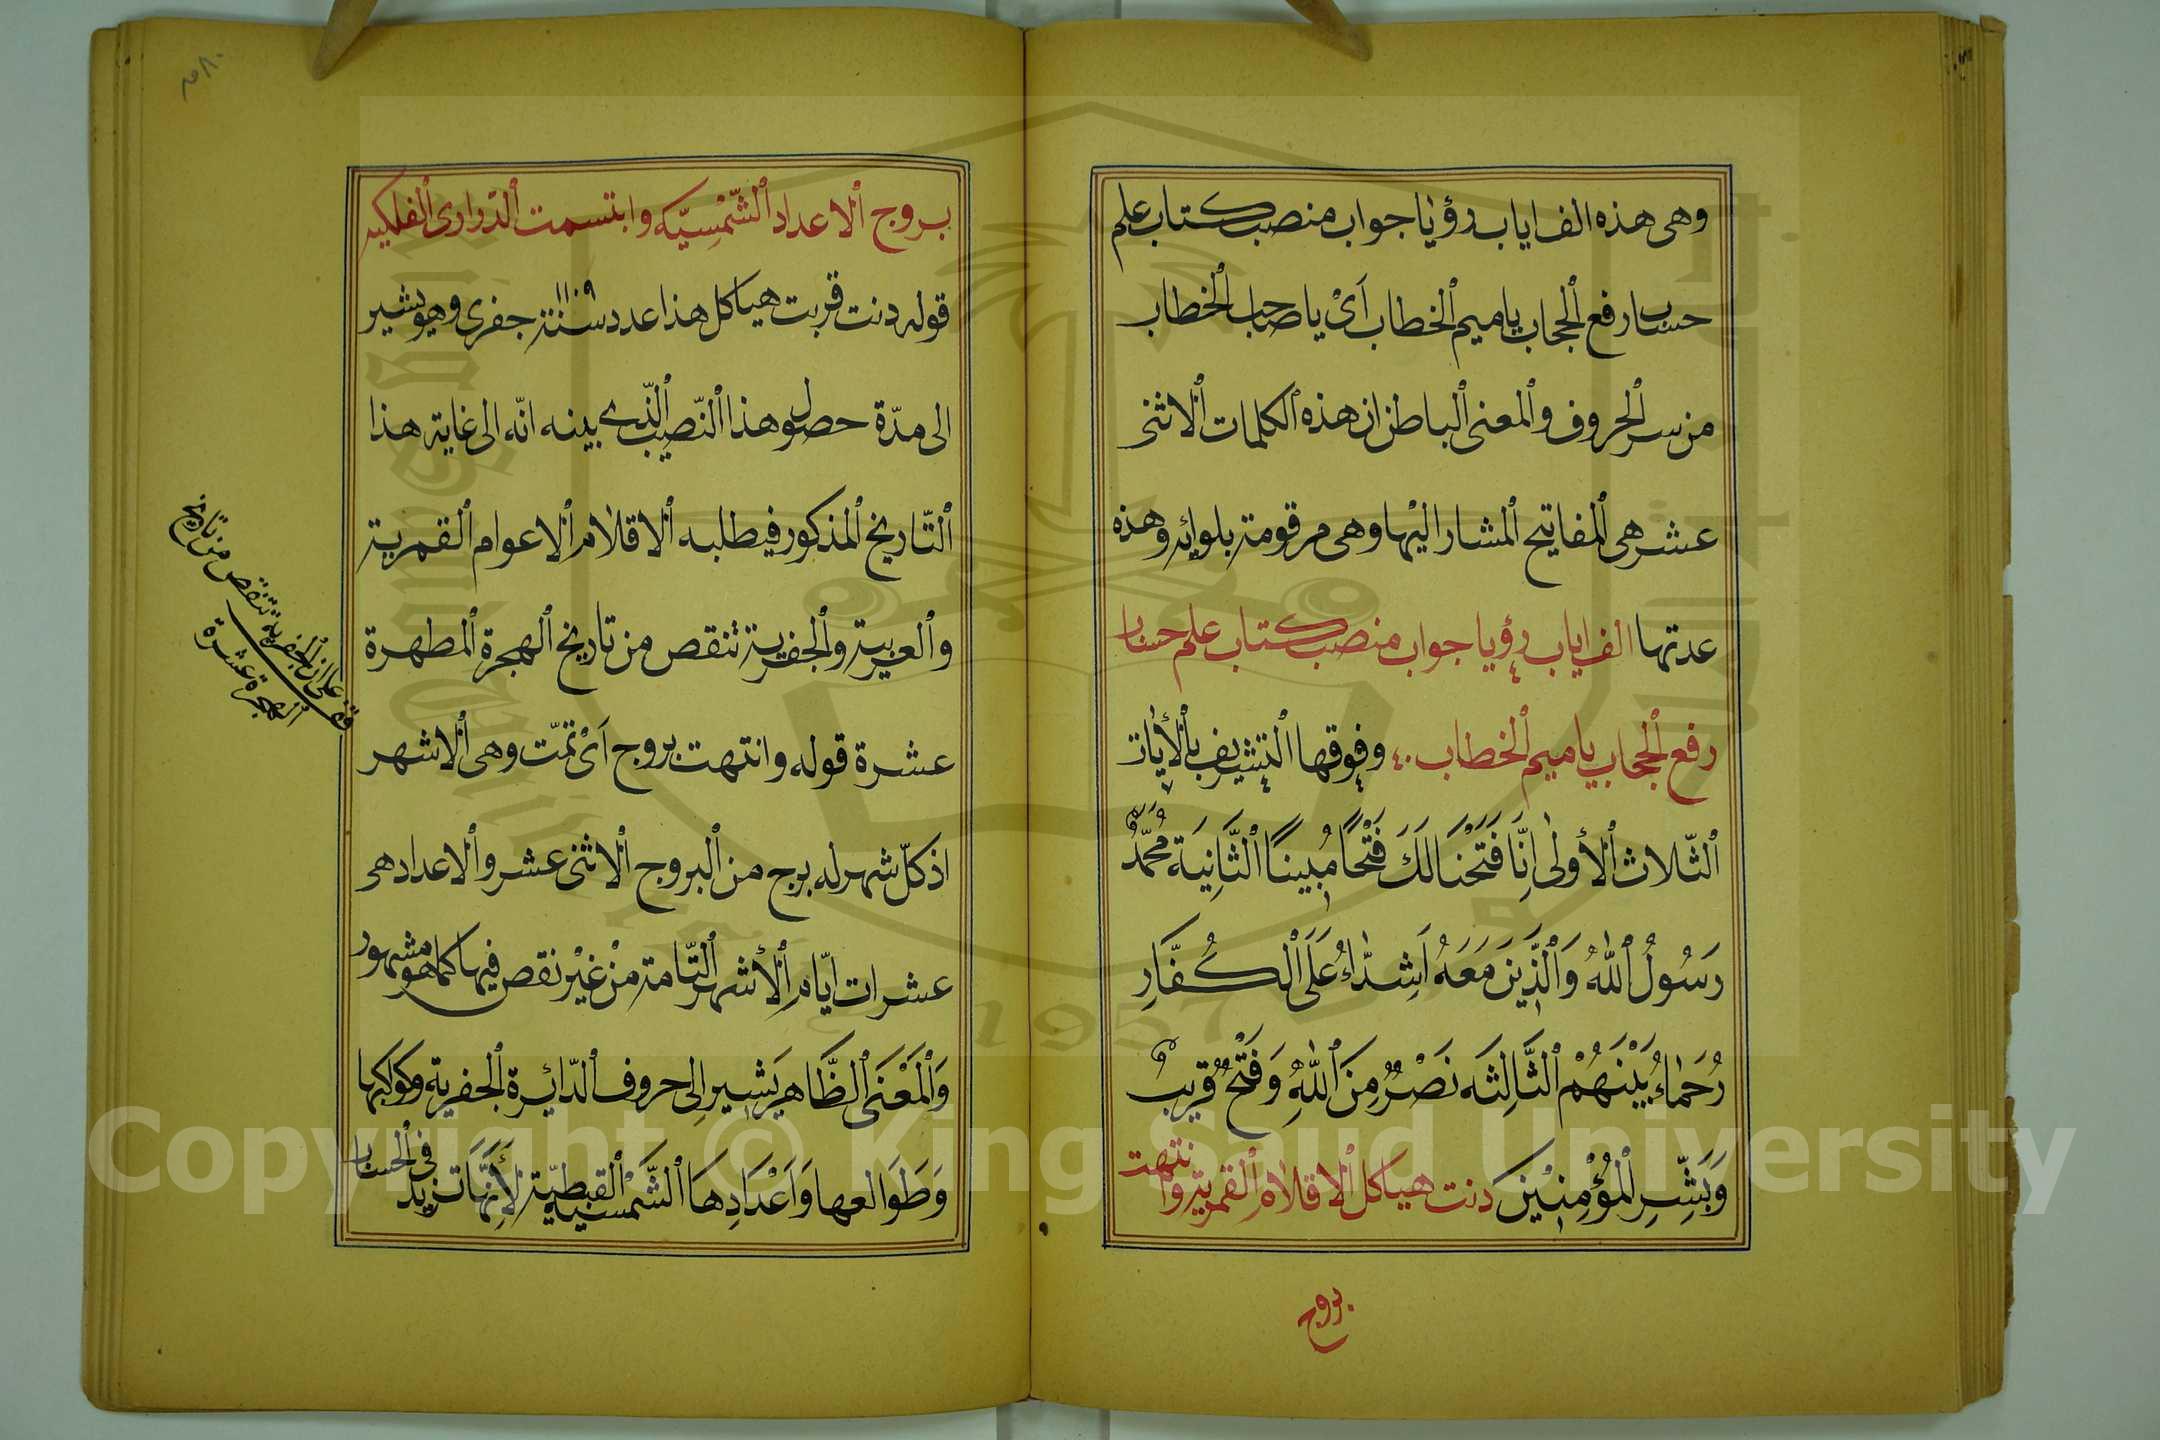 وهى هذه الف اياب رؤيا جواب منصب كتاب علم
حساب رفع الحجاب يا ميم الخطاب اَىْ يا صاحب الخطاب
من سر الحروف والمعنى الباطن ان هذه الكلمات الاثنى
عشر هى المفاتيح المشار اليها وهى مرقومة بلوائه وهذه
عدتها الف اياب رؤيا جواب منصب كتاب علم حساب
رفع الحجاب يا ميم الخطاب ٤٠ وفوقها التشريف بالأيات
الثّلاث الأولى اِنَّا فَتَحْنَا لَكَ فَتْحًا مُبِينًا الثَّانِيَة مُحَمَّدٌ
رَسُولُ اللهُ وَالَّذِينَ مَعَهُ اَشِدَّاءُ عَلَى الْكُفَّارِ
رُحَمَاءُ بَيْنَهُمْ الثَّالِثَه نَصْرٌ مِنَ اللهِ وَفَتْحٌ قَرِيبٌ
وَبَشِّرِ الْمُؤْمِنِينَ دنت هياكل الاقلام القمرية وانتهت
بروج
بروج الاعداد الشّمْسِيَّه وابتسمت الدّرارى الفلكيه
قوله دنت قربت هياكل هذا عدد سنة ١١٠٩ جفرى وهو يشير
الى مدّة حصول هذا النّصيب الّذى بينه انّه الى غاية هذا
التّاريخ المذكور فيطلبه الاقلام الاعوام القمرية
والعربية والجفرية تنقص من تاريخ الهجرة المطهرة
عشرة قوله وانتهت بروج اَىْ تمّت وهى الاشهر
اذ كلّ شهر له برج من البروج الاثنى عشر والاعداد هى
عشرات ايّام الأشهر التّامة منْ غيْر نقص فيها كما هو مشهور
وَالْمَعْنَى الظَّاهِر يَشير اِلى حروف الدّائِرة الجفرية وكواكبها
وَطَوَالعها وَاَعْدَادِهَا الشَّمْسيّة القبطيّة لأِنَّهَا تزيد فى الحساب
قف على ان الجفرية تنقص من تاريخ
الهجرة عشرة
Copyright © King Saud University
1957